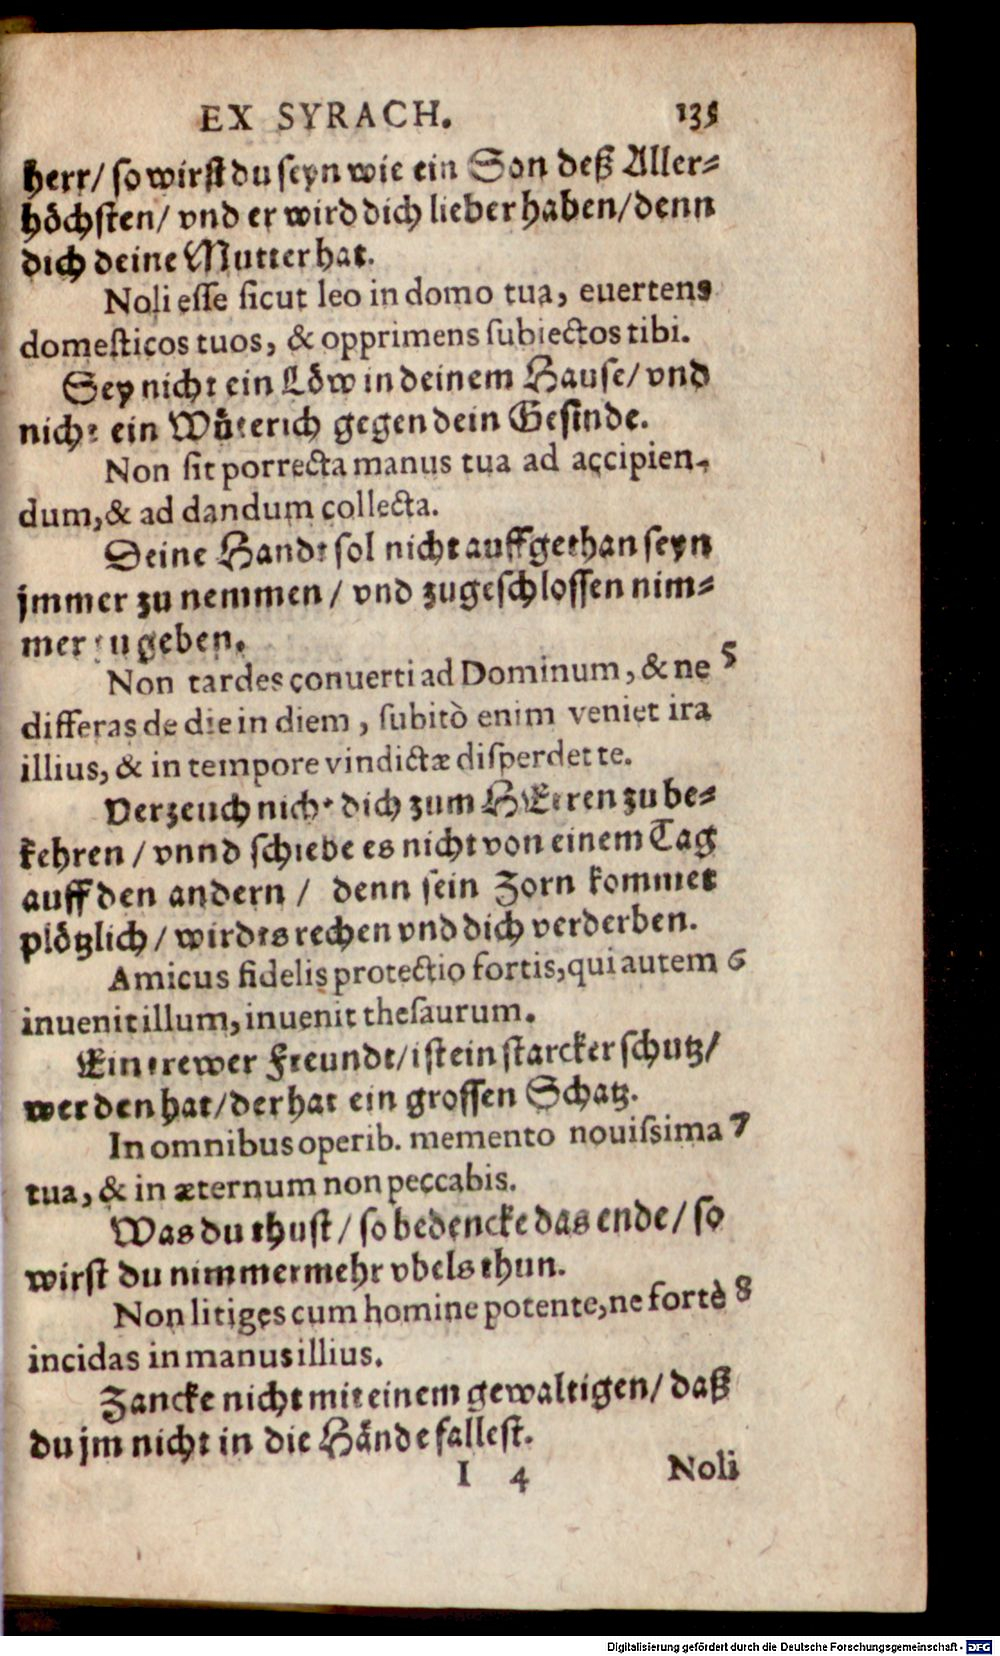 EX SYRACH. 135
herr/ so wirst du seyn wie ein Son deß Aller-
höchsten/ vnd er wird dich lieber haben/ denn
dich deine Mutter hat.
Noli esse sicut leo in domo tua, euertens
domesticos tuos, & opprimens subiectos tibi.
Sey nicht ein Löw in deinem Hause/ vnd
nicht ein Wüterich gegen dein Gesinde.
Non sit porrecta manus tua ad accipien-
dum, & ad dandum collecta.
Deine Handt sol nicht auffgethan seyn
jmmer zu nemmen / vnd zugeschlossen nim-
mer zu geben.
Non tardes conuerti ad Dominum, & ne 5
differas de die in diem, subitò enim veniet ira
illius, & in tempore vindictæ disperdet te.
Verzeuch nicht dich zum HErren zu be-
kehren / vnnd schiebe es nicht von einem Tag
auff den andern / denn sein Zorn kommet
plötzlich / wirdts rechen vnd dich verderben.
Amicus fidelis protectio fortis, qui autem 6
inuenit illum, inuenit thesaurum.
Ein trewer Freundt/ ist ein starcker schutz/
wer den hat/ der hat ein grossen Schatz.
In omnibus operib. memento nouissima 7
tua, & in æternum non peccabis.
Was du thust / so bedencke das ende/ so
wirst du nimmermehr vbels thun.
Non litiges cum homine potente, ne fortè 8
incidas in manus illius.
Zancke nicht mit einem gewaltigen/ daß
du jm nicht in die Hände fallest.
I 4 Noli
Digitalisierung gefördert durch die Deutsche Forschungsgemeinschaft - DFG